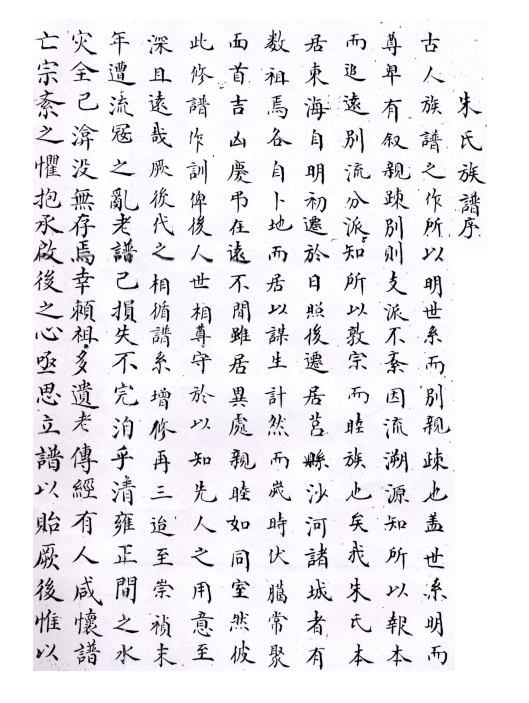 朱氏族譜序
古人族譜之作所以明世系而別親疎也盖世系明而
尊卑有叙親疎別則支派不紊因流溯源知所以報本
而追遠別流分派知所以敦宗而睦族也矣我朱氏本
居東海自明初遷於日照後遷居莒縣沙河諸城者有
数祖焉各自卜地而居以謀生計然而歲時伏臘常聚
面首吉凶慶弔在遠不間雖居異處親睦如同室然彼
此修譜作訓俾後人世相尊守於以知先人之用意至
深且遠哉厥後代之相循譜系增修再三迨至崇禎末
年遭流寇之亂老譜已損失不完洎乎清雍正間之水
灾全已渰没無存焉幸賴祖多遺老傳經有人咸懷譜
亡宗紊之懼抱承啟後之心亟思立譜以貽厥後惟以